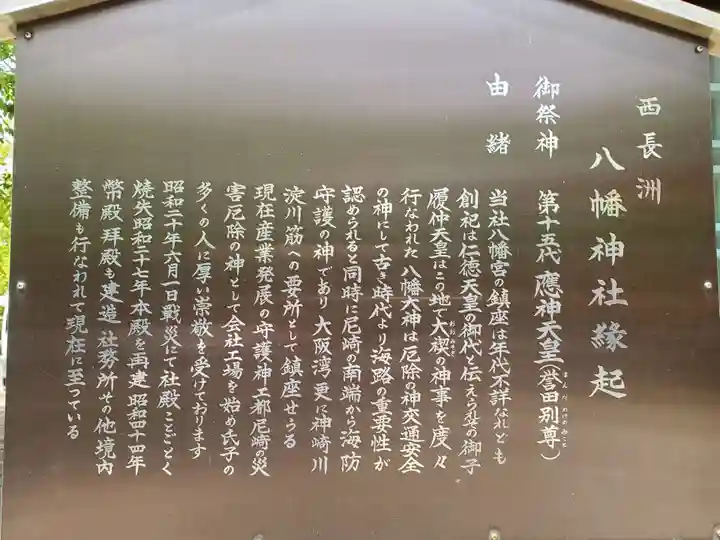 西長洲
八幡神社縁起
御祭神 第十五代 應神天皇(誉田別尊)
ほんだわけのみこと
由緒
当社八幡宮の鎮座は年代不詳なれども
創祀は仁徳天皇の御代と伝えられその御子
履仲天皇はこの地で大禊の神事を度々
おおみそぎ
行なわれた 八幡大神は厄除の神交通安全
の神にして古き時代より海路の重要性が
認められると同時に尼崎の南端から海防
守護の神であり 大阪湾更に神崎川
淀川筋への要所として鎮座せうる
現在産業発展の守護神工都尼崎の災
害厄除の神として会社工場を始め氏子の
多くの人に厚い崇敬を受けております
昭和二十年六月一日戦災にて社殿ことごとく
焼失昭和二十七年本殿を再建 昭和四十四年
幣殿拝殿も建造 社務所その他境内
整備も行なわれて現在に至っている